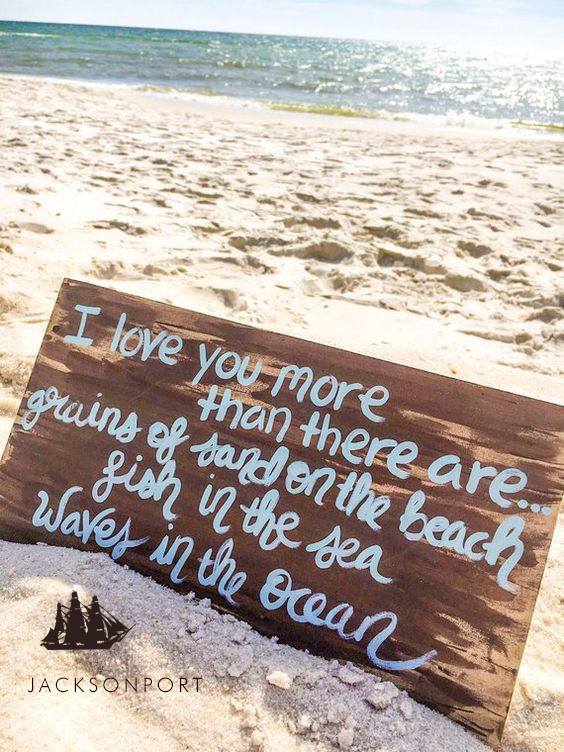 I love you more
than there are...
grains of sand on the beach
fish in the sea
Waves in the ocean
JACKSONPORT